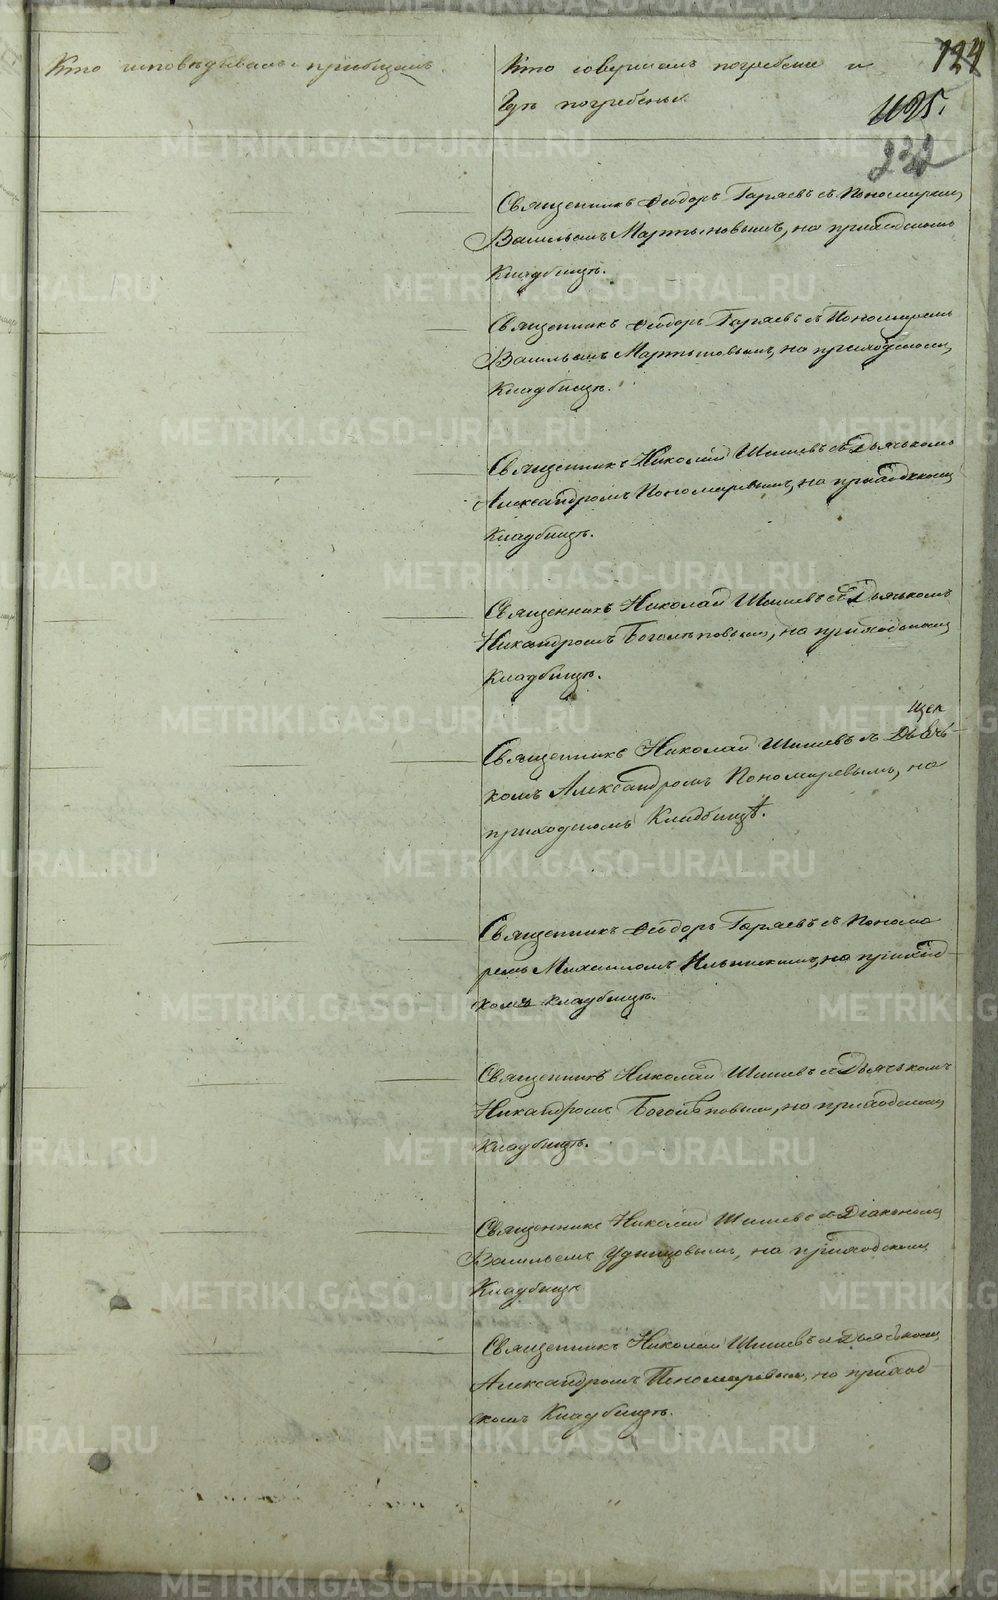 Кто исповѣдывалъ и пріобщалъ.
Кто совершалъ погребеніе и
гдѣ погребены.
124
232
Священникъ Ѳеодоръ Гаряевъ съ Пономаремъ
Васильемъ Мартыновымъ, на приходскомъ
Кладбищѣ.
Священникъ Ѳеодоръ Гаряевъ съ Пономаремъ
Васильемъ Мартыновымъ, на приходскомъ
Кладбищѣ.
Священникъ Николай Шишевъ съ Дьячкомъ
Александромъ Пономаревымъ, на приходскомъ
Кладбищѣ.
Священникъ Николай Шишевъ съ Дьячкомъ
Никандромъ Боголѣповымъ, на приходскомъ
Кладбищѣ.
Священникъ Николай Шишевъ съ Дьячь-
комъ Александромъ Пономаревымъ, на
приходскомъ Кладбищѣ.
Священникъ Ѳеодоръ Гаряевъ съ Понома
ремъ Михаиломъ Ильинскимъ, на приход-
скомъ кладбищѣ.
Священникъ Николай Шишевъ съ Дьячькомъ
Никандромъ Боголѣповымъ, на приходскомъ
Кладбищѣ.
Священникъ Николай Шишевъ съ Діакономъ
Васильемъ Удинцовымъ, на приходскомъ
Кладбищѣ
Священникъ Николай Шишевъ съ Дьячькомъ
Александромъ Пономаревымъ, на приход
скомъ Кладбищѣ.
METRIKI.GASO-URAL.RU